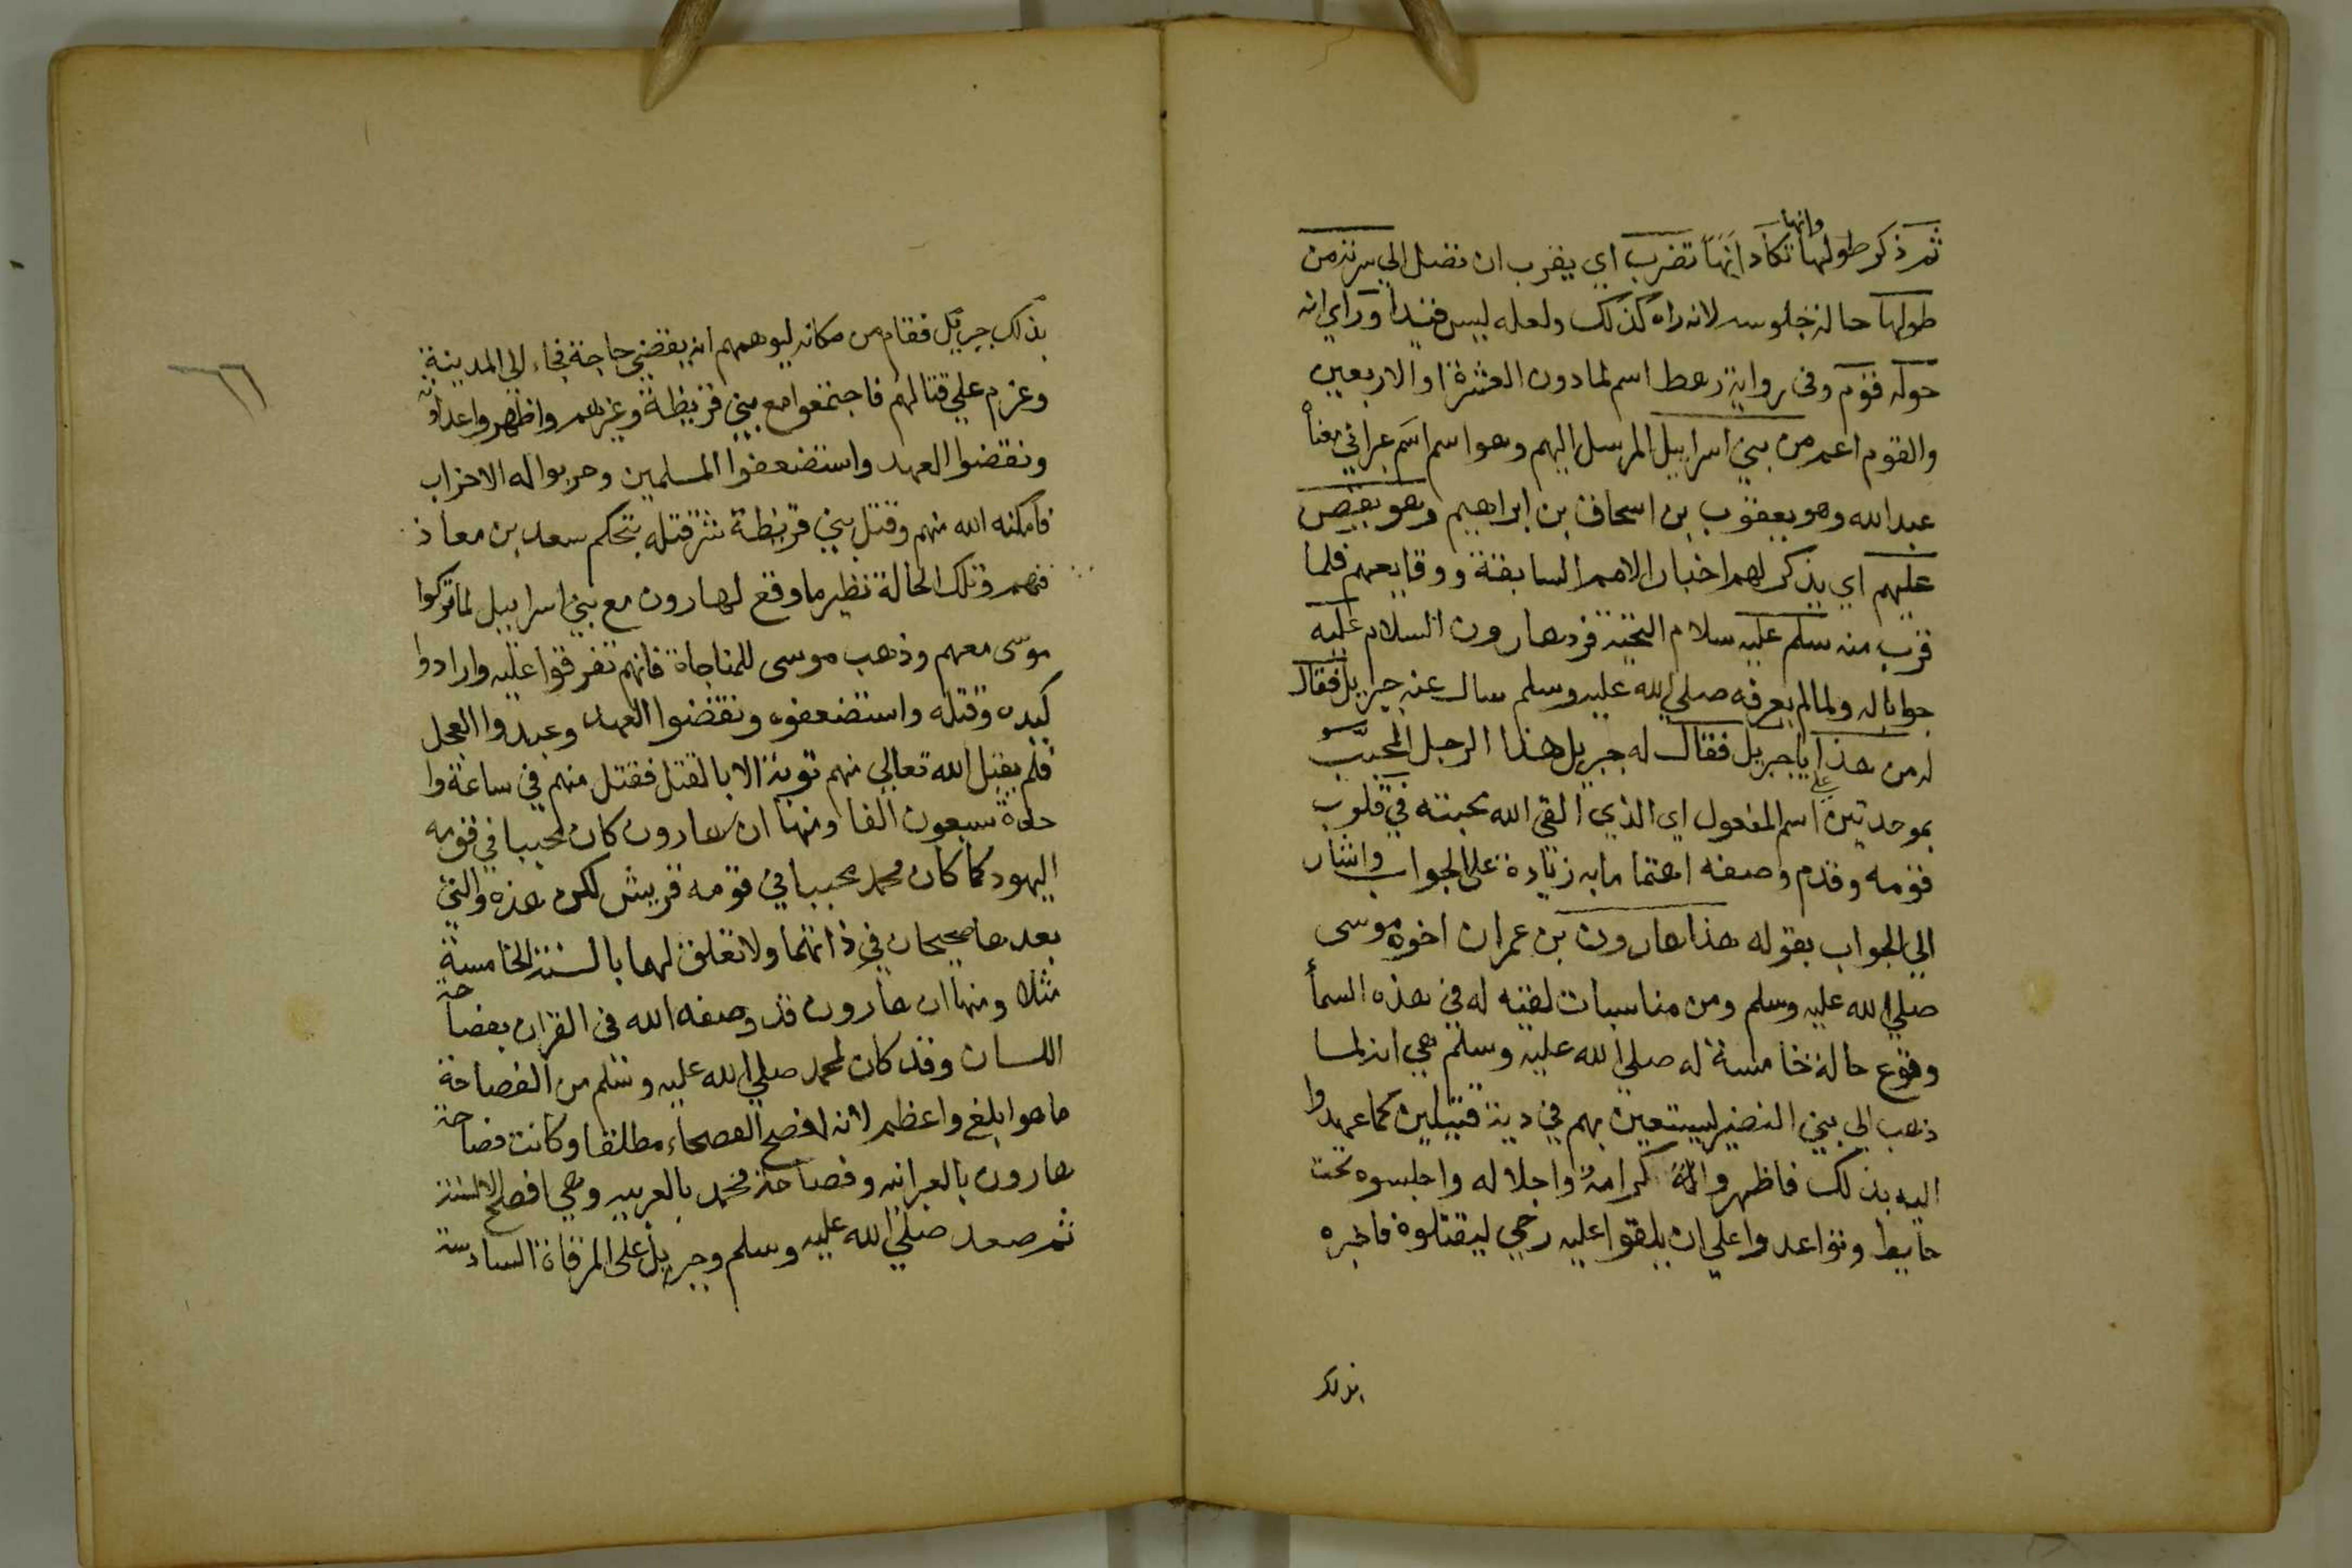 وانها
ثم ذكر طولها تكاد انها تضرب اي يقرب ان تصل الي سرته من
طولها حالة جلوسه لانه راه كذلك ولعله ليس قيدا وراي ان
حوله قوم وفي رواية رهط اسم لما دون العشرة او الاربعين
والقوم اعم من بني اسراييل المرسل اليهم وهو اسم عبراني معناه
عبد الله وهو يعقوب بن اسحاق بن ابراهيم وهو يقص
عليهم اي يذكر لهم اخبار الامم السابقة ووقايعهم فلما
قرب منه سلم عليه سلام التحية فرد هارون السلام عليه
جوابا له ولما لم يعرفه صلي الله عليه وسلم سال عنه جبريل فقال
له من هذا يا جبريل فقال له جبريل هذا الرجل المحبب
بموحدتين علي اسم المفعول اي الذي القي الله محبته في قلوب
قومه وقدم وصفه اهتماما به زيادة على الجواب واشار
الي الجواب بقوله هذا هارون بن عمران اخوه موسى
صلي الله عليه وسلم ومن مناسبات لقيه له في هذه السماء
وقوع حالة خامسة له صلي الله عليه وسلم هي انه لما
ذهب الي بني النضير ليستعين بهم في دية قتيلين كما عهدوا
اليه بذلك فاظهروا له كرامة واجلاله واجلسوه تحت
حايط وتواعدوا علي ان يلقوا عليه رحي ليقتلوه فاخبره
بذلك
٦٦
بذلك جبريل فقام من مكانه ليوهمهم انه يقضي حاجة فجاء الي المدينة
وعزم علي قتالهم فاجتمعوا مع بني قريظة وغيرهم واظهروا عداوته
ونقضوا العهد واستضعفوا المسلمين وحزبوا له الاحزاب
فامكنه الله منهم وقتل بني قريظة شر قتله بتحكم سعد بن معاذ
فيهم وتلك الحالة نظير ما وقع لهارون مع بني اسراييل لما تركوا
موسى معهم وذهب موسى للمناجاة فانهم تفرقوا عليه وارادوا
كيده وقتله واستضعفوه ونقضوا العهد وعبدوا العجل
فلم يقبل الله تعالي منهم توبة الا بالقتل فقتل منهم في ساعة وا
حدة سبعون الفا ومنها ان هارون كان محببا في قومه
اليهود كما كان محمد محببا في قومه قريش لكن هذه والتي
بعدها صحيحان في ذاتهما ولا تعلق لهما بالسنة الخامسة
مثلا ومنها ان هارون قد وصفه الله في القران بفصاحة
اللسان وقد كان لمحمد صلي الله عليه وسلم من الفصاحة
ما هو ابلغ واعظم لانه افصح الفصحاء مطلقا وكانت فصاحة
هارون بالعبرانيه وفصاحة محمد بالعربيه وهي افصح الالسنة
ثم صعد صلي الله عليه وسلم وجبريل على المرقاة السادسة